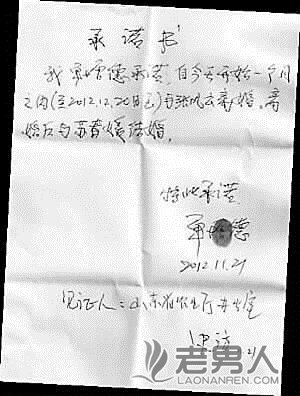 承诺书
我单增德承诺自今天开始一个月
之内(至2012.12.20日止)与张凡离婚,离
婚后与苏春媛结婚。
特此承诺
单增德
2012.11.21
见证人:山东省农业厅办公室
老男人
LAONANREN.COM